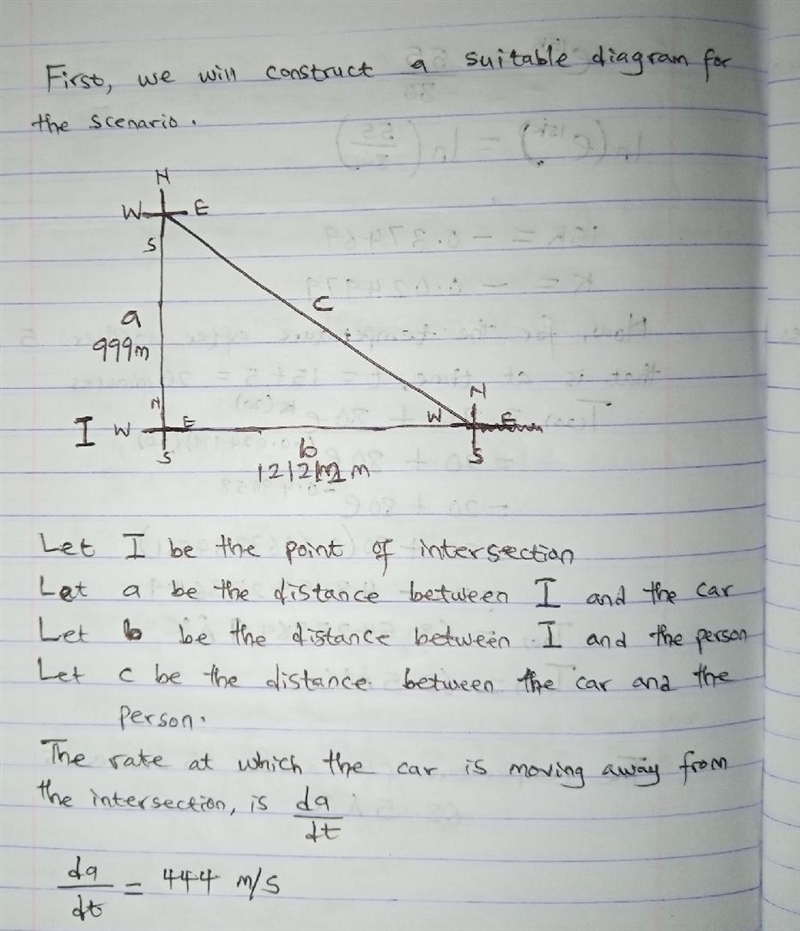 First, we will construct a suitable diagram for
the scenario.
N
W E
S
a
999m
c
N
I W E
S
b
1212 m
N
W E
S
Let I be the point of intersection
Let a be the distance between I and the car
Let b be the distance between I and the person
Let c be the distance between the car and the
person.
The rate at which the car is moving away from
the intersection, is da/dt
da/dt = 444 m/s